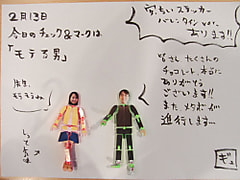 2月13日
今日のチェック&マークは
「モテる男」
ちいステッカー
バレンタインver.
あります!!
皆さん たくさんの
チョコレート 本当に
ありがとう
ございます!!
また メタボが
進行します…
先生、
モテモテょ